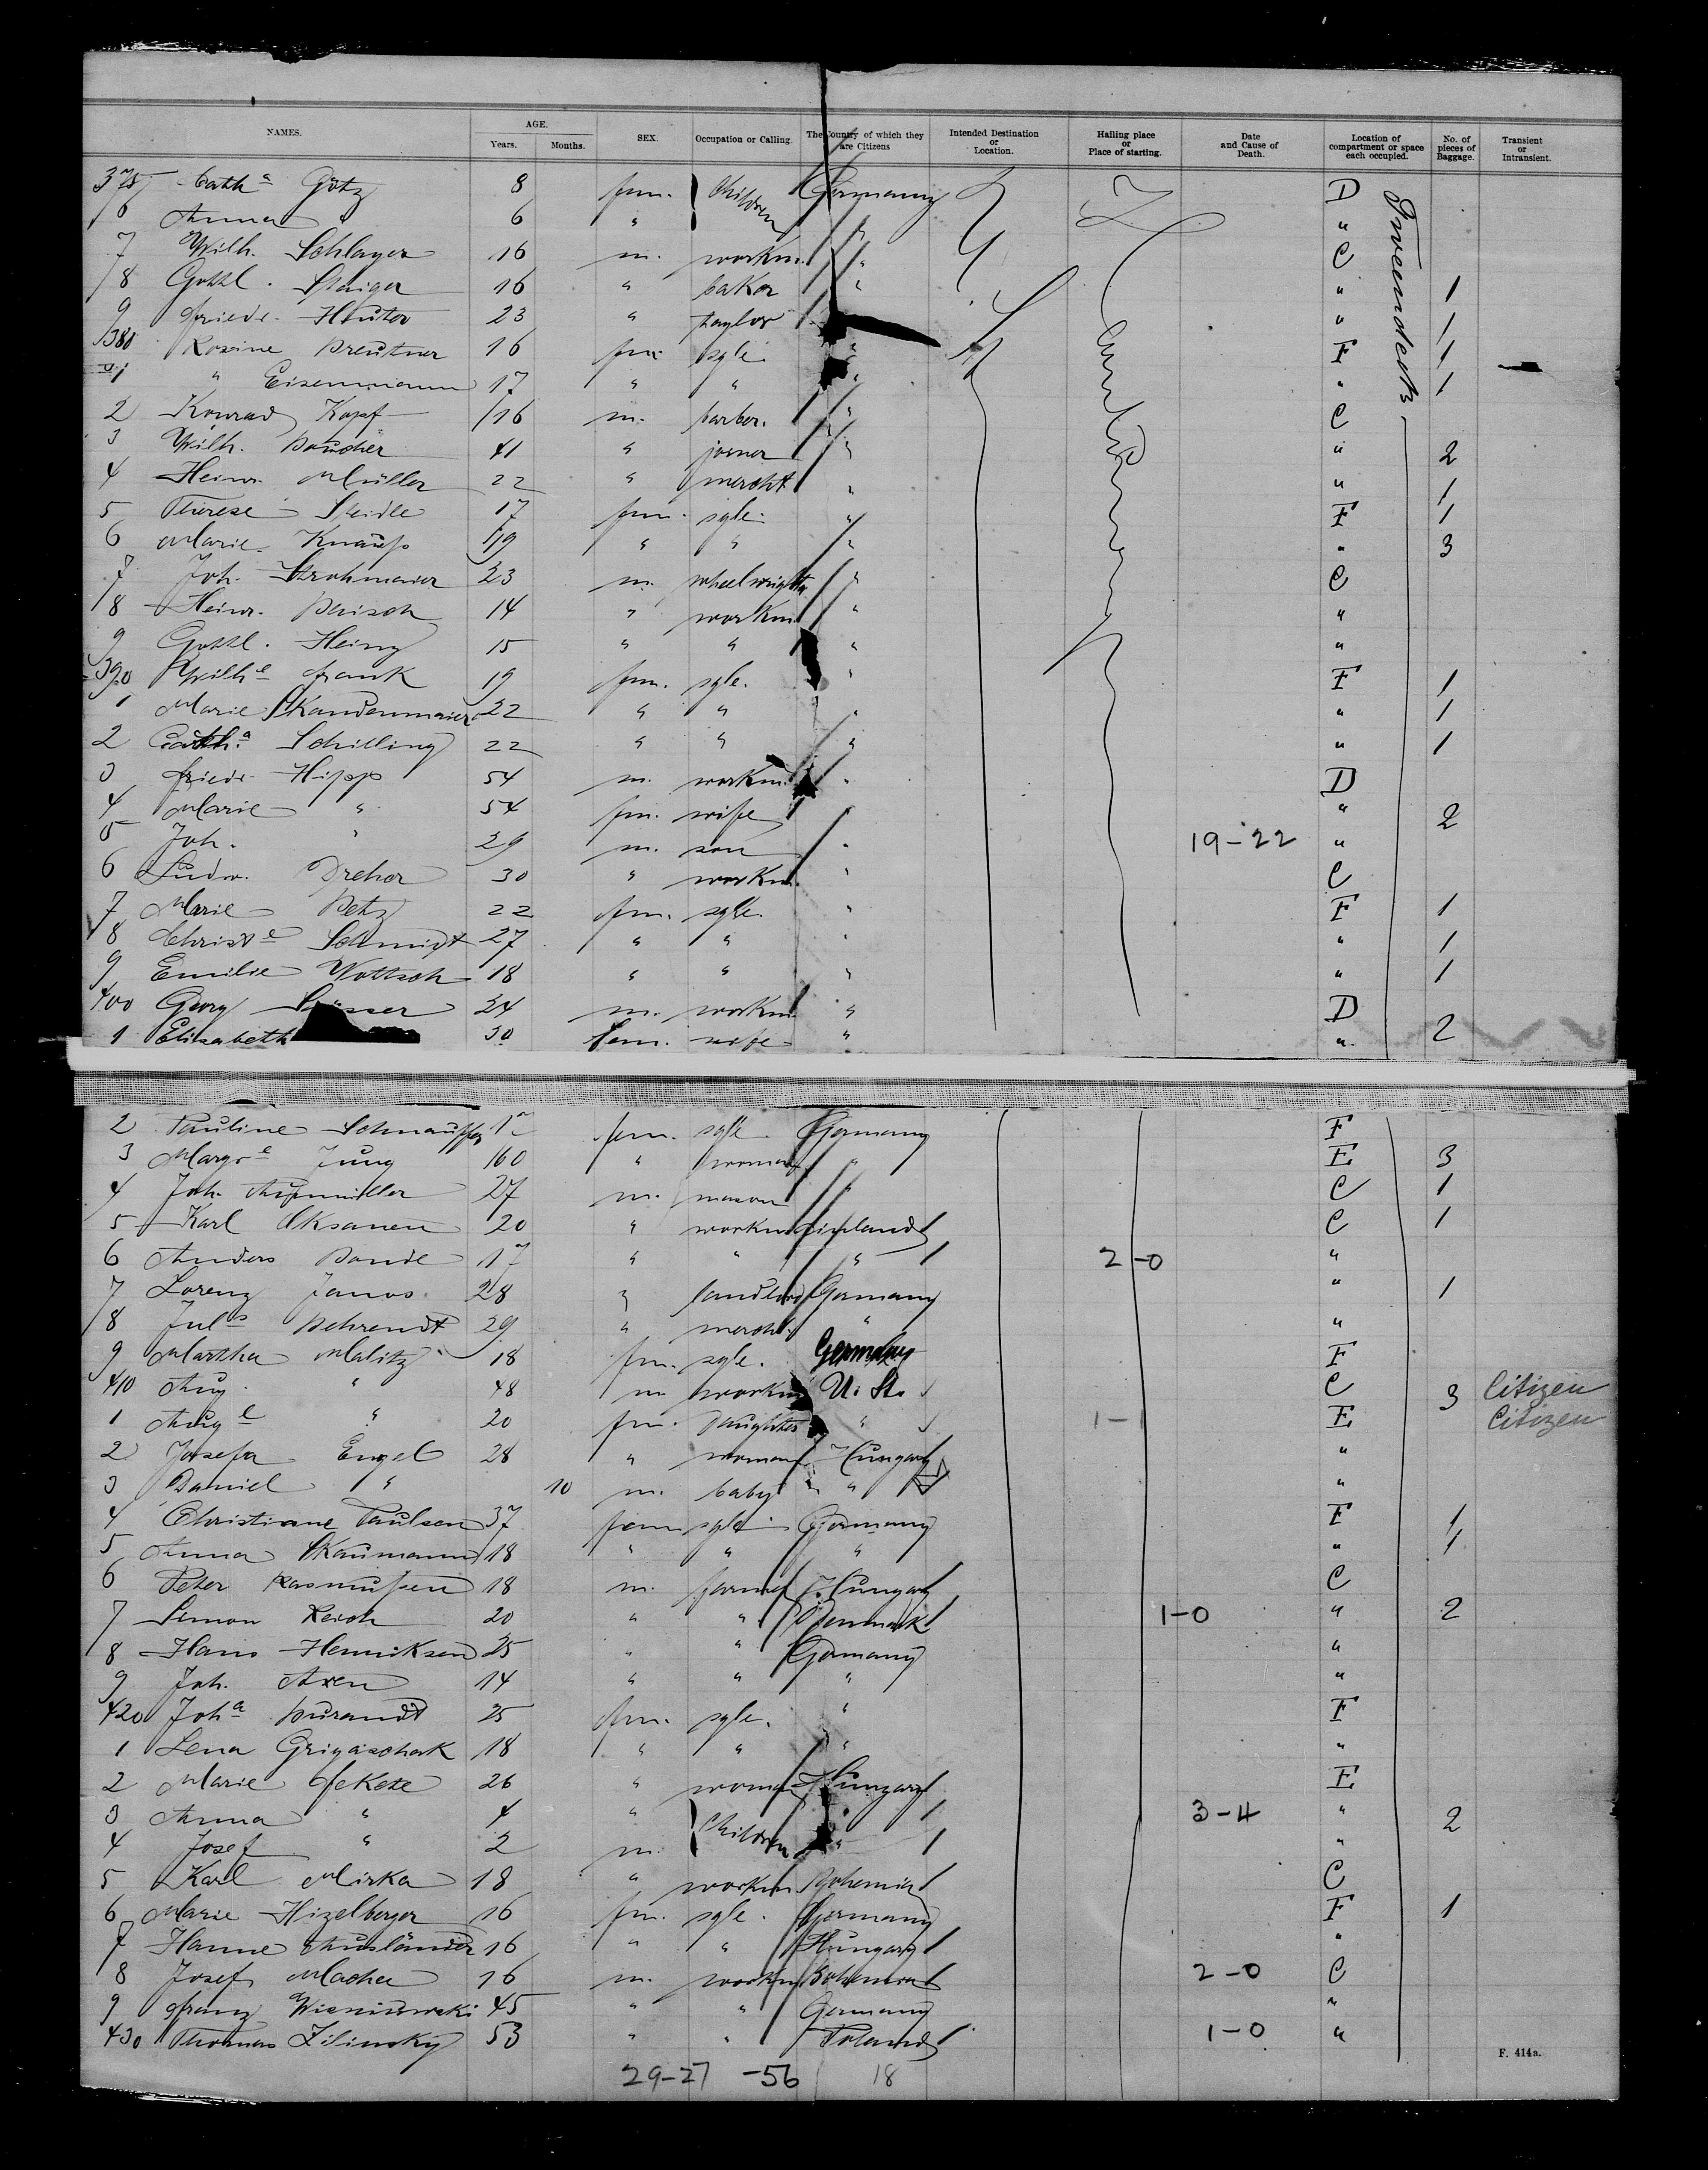 NAMES. AGE. Years. Months. SEX. Occupation or Calling. The Country of which they are Citizens Intended Destination or Location. Hailing place or Place of starting. Date and Cause of Death. Location of compartment or space each occupied. No. of pieces of Baggage. Transient or Intransient.
375 Cath.a Götz 8 fem. Children Germany D
6 Anna " 6 " " "
7 Wilh. Schlayer 16 m. workm. " C
8 Gottl. Staiger 16 " baker " " 1
9 Friedr. 23 " taylor " 1
380 Rosine 16 fem. sgle. " F 1
1 " Eisenmann 17 " " " " 1
2 Konrad Kopf 16 m. barber. " C
3 Wilh. 41 " joiner " " 2
4 Heinr. Müller 22 " mercht " " 1
5 Therese Steidle 17 fem. sgle. " F 1
6 Marie Knauss 19 " " " " 3
7 Joh. Strohmaier 23 m. wheelwright " C
8 Heinr. 14 " workm. " "
9 Gottl. Heinz 15 " " " "
390 Wilh.e Frank 19 fem. sgle. " F 1
1 Marie Kandenmaier 22 " " " " 1
2 Cath.a Schilling 22 " " " " 1
3 Friedr. Hipp 54 m. workm. " D
4 Marie " 54 fem. wife " " 2
5 Joh. " 29 m. son " 19-22 "
6 Ludw. Dreher 30 " workm. " C
7 Marie Betz 22 fem. sgle. " F 1
8 Christ.e Schmidt 27 " " " " 1
9 Emilie Wottsch 18 " " " " 1
400 Georg 34 m. workm. " D
1 Elisabeth 30 fem. wife " " 2
2 Pauline Schnauffer fem. sgle. Germany F
3 Margr.e Jung 60 " woman " E 3
4 Joh. 27 m. mason " C 1
5 Karl Oksanen 20 " workm. Finland C 1
6 Anders 17 " " " 2-0 "
7 Lorenz Janos 28 " Germany " 1
8 Jul.s Behrendt 29 " mercht. " "
9 Martha Malitz 18 fem. sgle. Germany F
410 Aug. " 48 m. workm. U. St. C 3 Citizen
1 Aug.e " 20 fem. Daughter " 1-1 E Citizen
2 Josefa Engel 28 " woman Hungary "
3 Daniel " 10 m. baby " "
4 Christiane Paulsen 37 fem. sgle. Germany F 1
5 Anna 18 " " " " 1
6 Peter Rasmussen 18 m. farmer Hungary C
7 Simon Reich 20 " " Denmark 1-0 " 2
8 Hans Henriksen 25 " " Germany "
9 Joh. Axen 14 " " " "
420 Joh.a Burandt 25 fem. sgle. " F
1 Lena Grigaschak 18 " " " "
2 Marie Fekete 26 " woman Hungary E
3 Anna " 4 " Children " 3-4 " 2
4 Josef " 2 m. " "
5 Karl Mirka 18 " workm. Bohemia C
6 Marie Hizelberger 16 fem. sgle. Germany F 1
7 Hanne Ausländer 16 " " Hungary "
8 Josef Macha 16 m. workm. Bohemia 2-0 C
9 Franz Wisniewski 45 " " Germany "
430 Thomas Zilinsky 53 " " Poland 1-0 "
Tweendeck
29-27 -56 18
F. 414a.